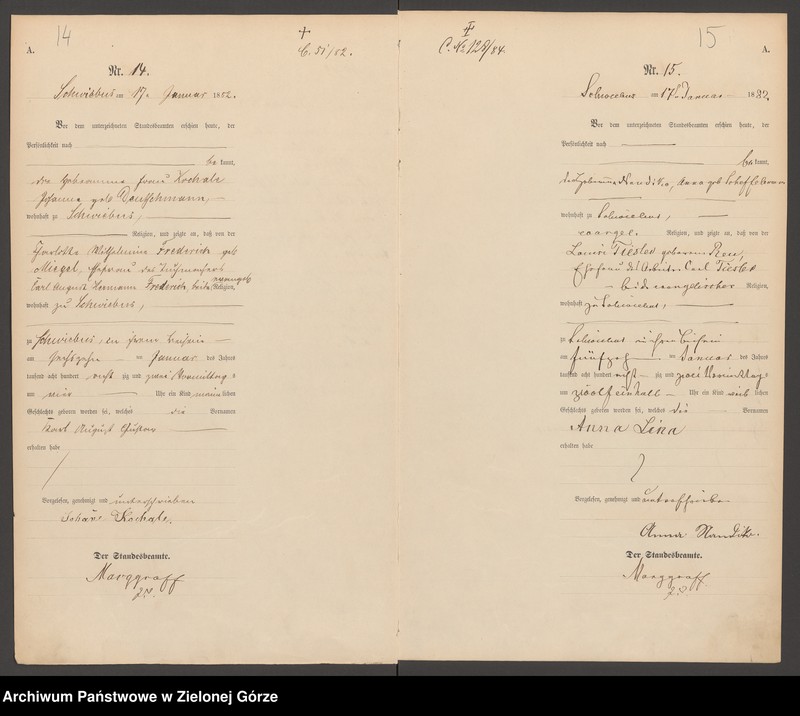 14
A.
C. 51/82.
Nr. 14.
Schwiebus am 17. Januar 1882.
Vor dem unterzeichneten Standesbeamten erschien heute, der
Persönlichkeit nach
be kannt,
die Hebeamme Frau Kochale
Johanna geb. Deutschmann,
wohnhaft zu Schwiebus,
Religion, und zeigte an, daß von der
Charlotte Wilhelmine Frederich geb.
Miegel, Ehefrau des
Carl August Hermann Frederich, beide evangel. Religion,
wohnhaft zu Schwiebus,
zu Schwiebus, in ihrem Hausein
am Januar des Jahres
tausend acht hundert acht zig und zwei Vormittags
um vier Uhr ein Kind männlichen
Geschlechts geboren worden sei, welches die Vornamen
Karl August Gustav
erhalten habe
Vorgelesen, genehmigt und unterschrieben
Kochale.
Der Standesbeamte.
Marggraff
15
A.
C. No 128/84.
Nr. 15.
Schwiebus am 17. Januar 1882.
Vor dem unterzeichneten Standesbeamten erschien heute, der
Persönlichkeit nach
be kannt,
die Hebeamme Anna geb.
wohnhaft zu Schwiebus,
evangel. Religion, und zeigte an, daß von der
Louise Tiesler geborenen
Ehefrau des Arbeiters Carl Tiesler
beide evangelischer Religion,
wohnhaft zu Schwiebus,
zu Schwiebus in ihrem
am fünfzehn Januar des Jahres
tausend acht hundert acht zig und zwei Vormittags
um zwölf einhalb Uhr ein Kind weib lichen
Geschlechts geboren worden sei, welches die Vornamen
Anna Lina
erhalten habe
Vorgelesen, genehmigt und unterschrieben
Anna
Der Standesbeamte.
Marggraff
Archiwum Państwowe w Zielonej Górze